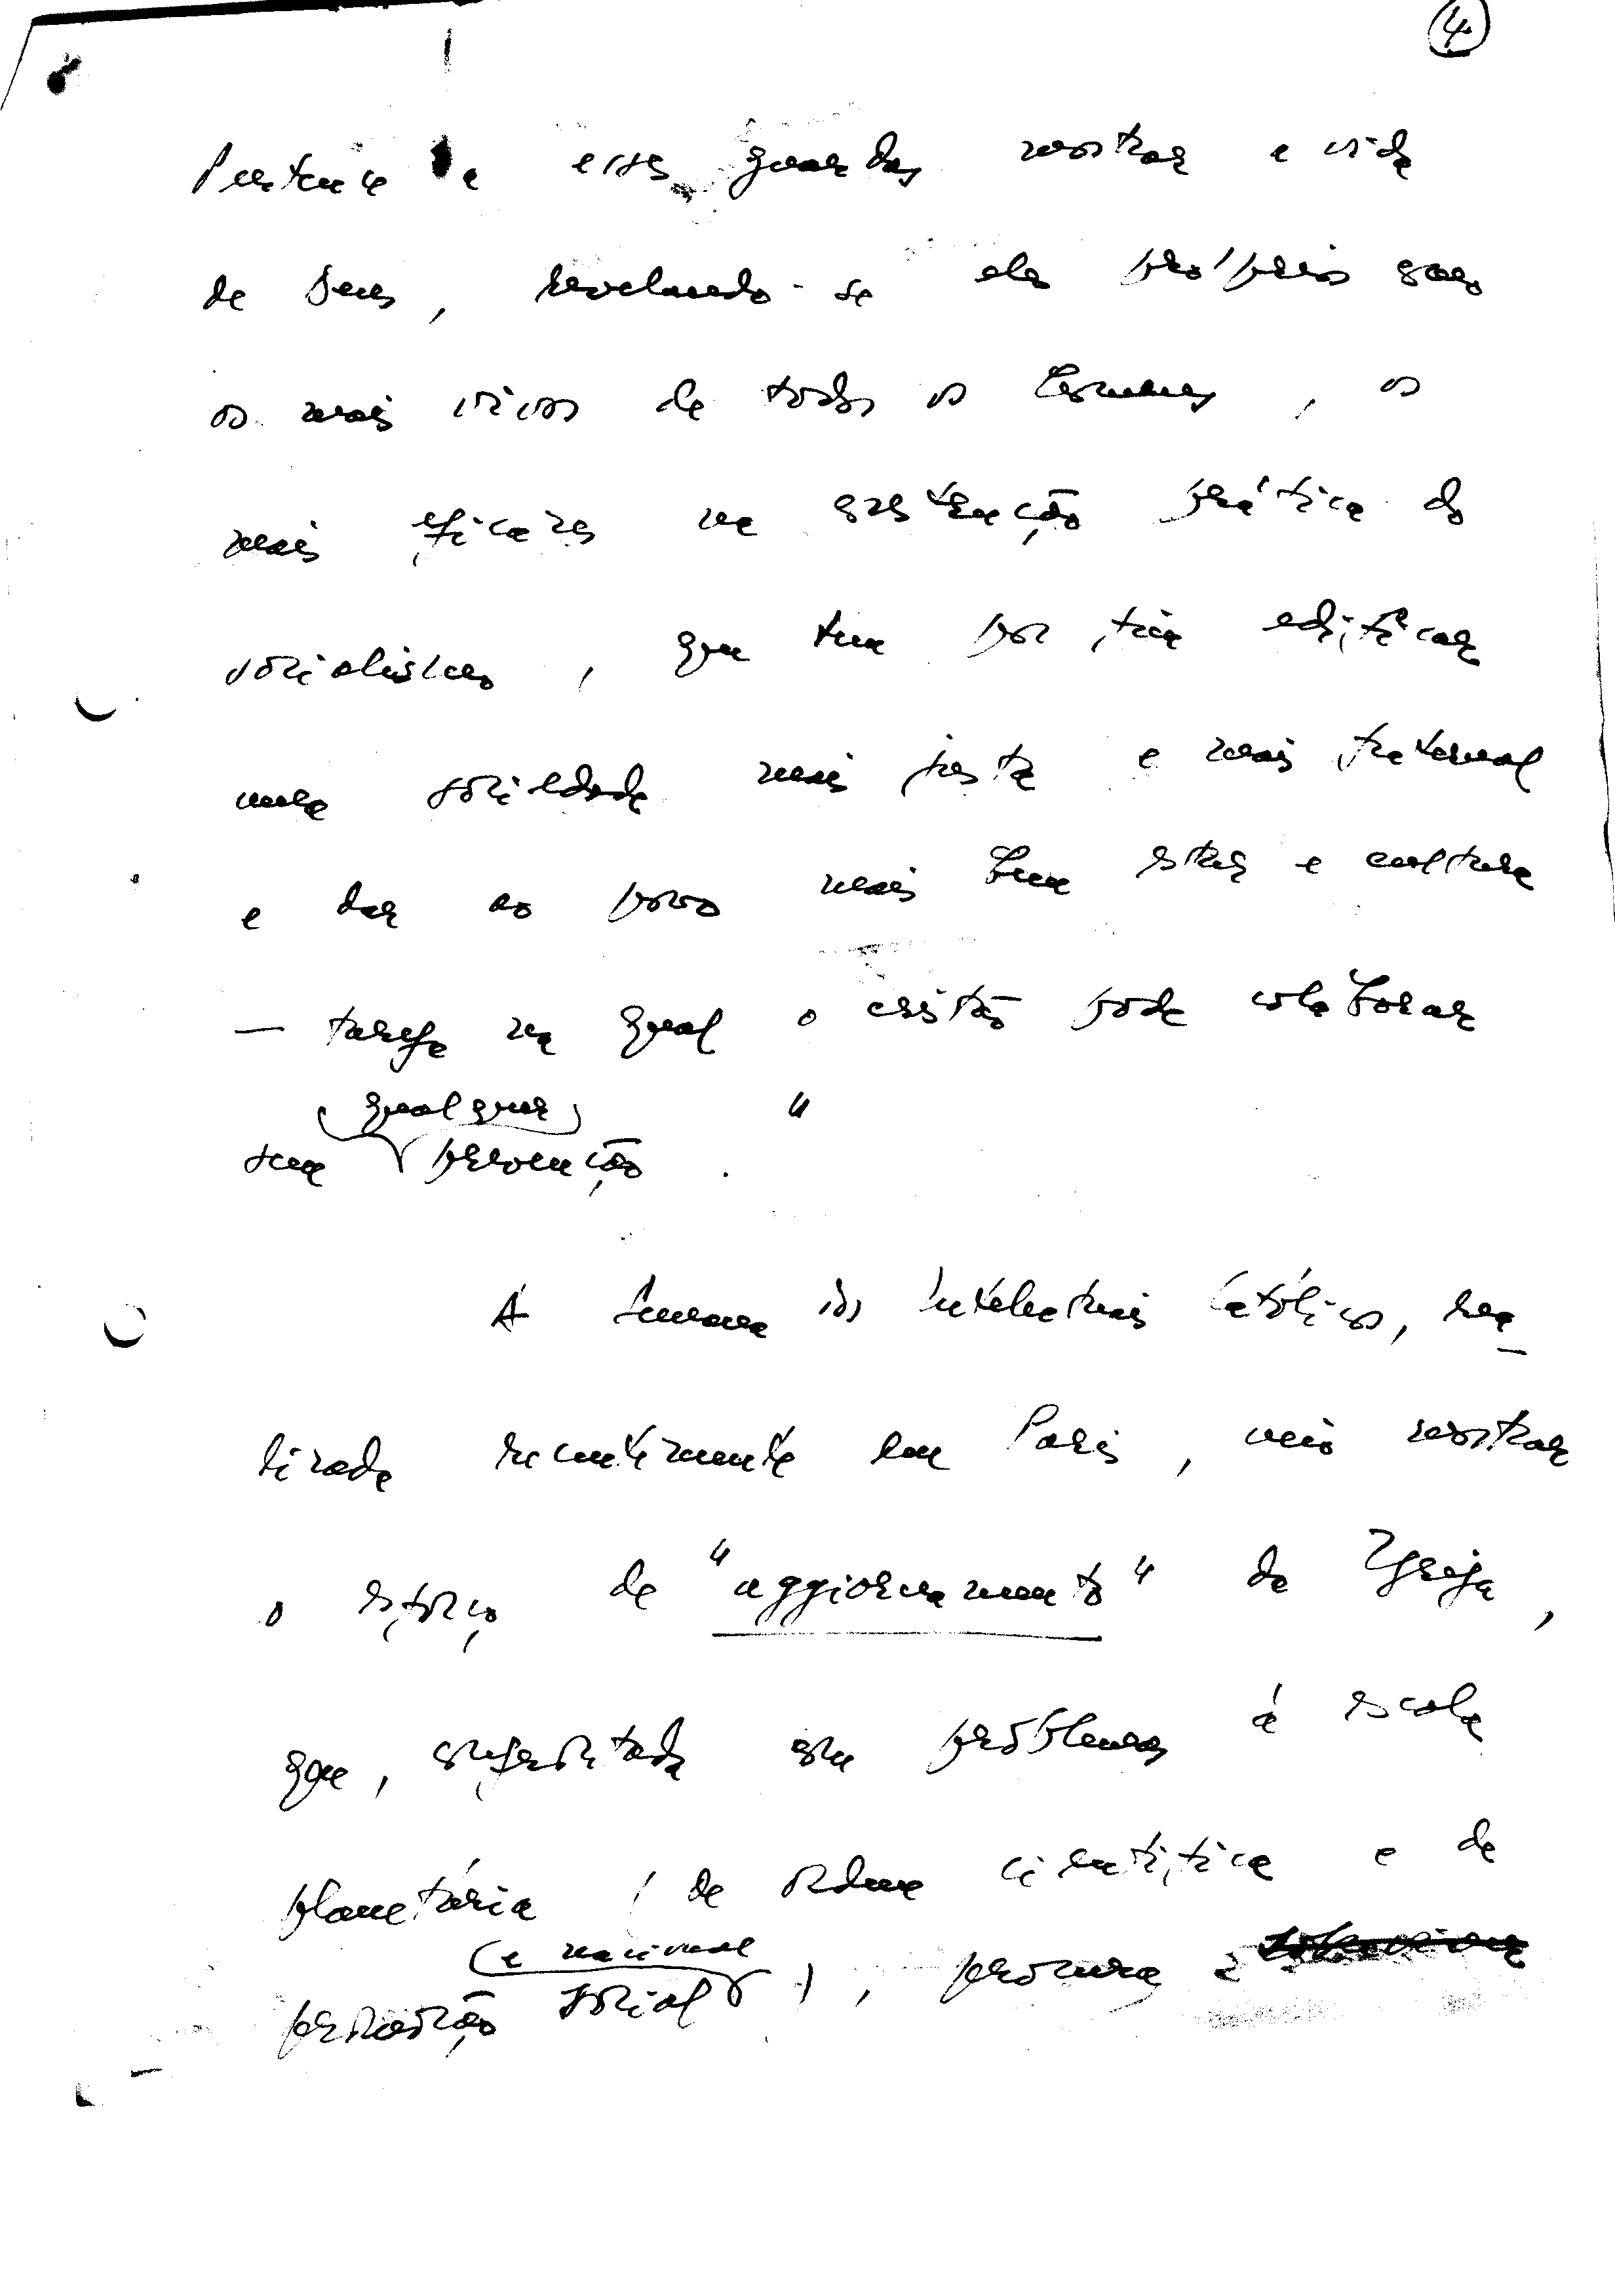 4
Pertence a esses guardas mostrar a vida
de Deus, revelando-se eles próprios como
os mais vivos de todos os homens, os
mais eficazes na construção prática do
socialismo, que tem por fim edificar
uma sociedade mais justa e mais fraternal
e dar ao povo mais bem estar e cultura
— tarefa na qual o cristão pode colaborar
qualquer
sem prevenção. "
A Semana dos Intelectuais Católicos, rea-
lizada recentemente em Paris, veio mostrar
o esforço de "aggiornamento" da Igreja,
que, confrontada com problemas à escala
planetária (de ordem científica e de
e nacional
promoção social), procura